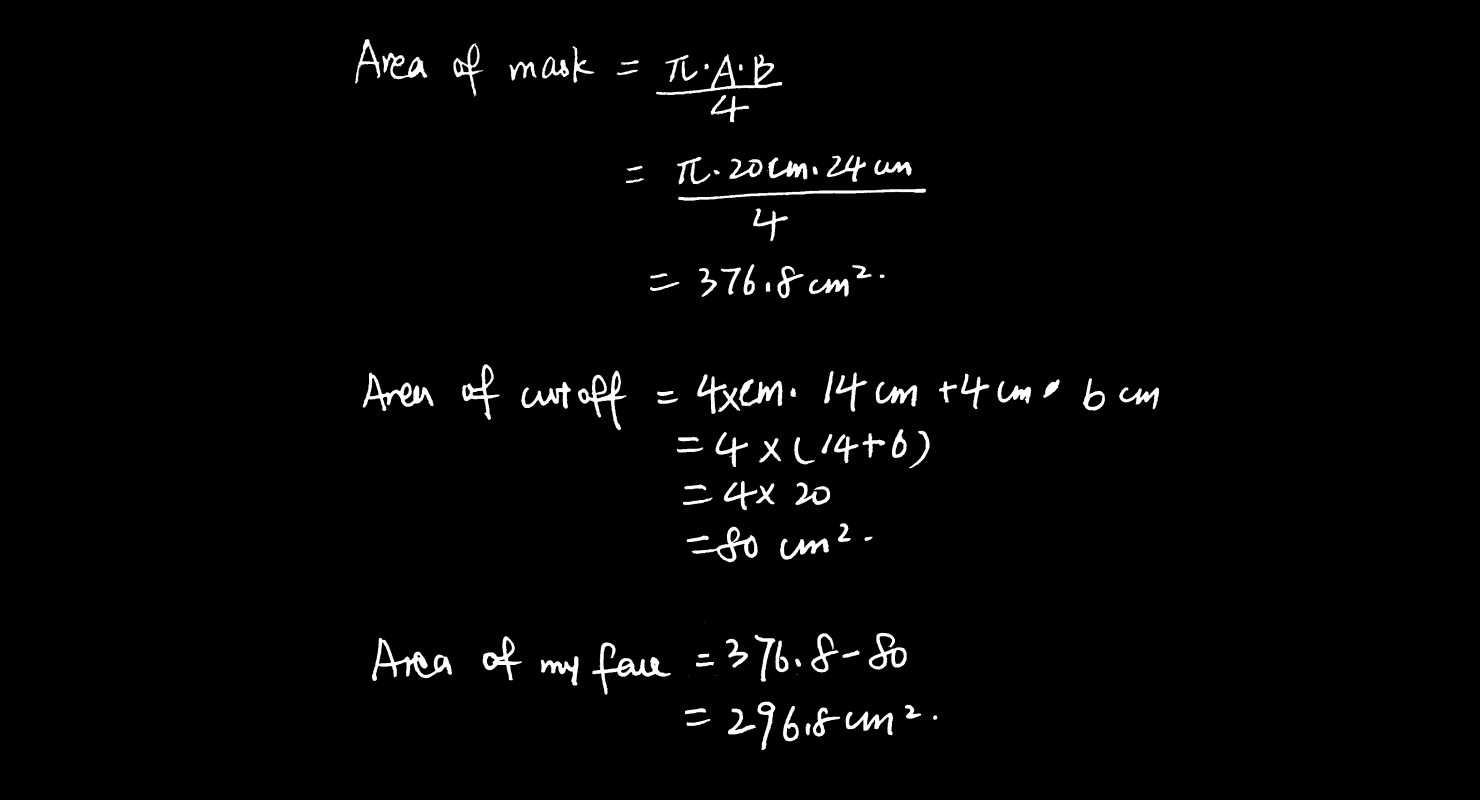 Area of mask = π·A·B
4
= π·20cm·24cm
4
= 376.8cm².
Area of cutoff = 4xcm· 14cm +4cm· 6cm
=4x(14+6)
=4x 20
=80 cm².
Area of my face =376.8-80
= 296.8cm².